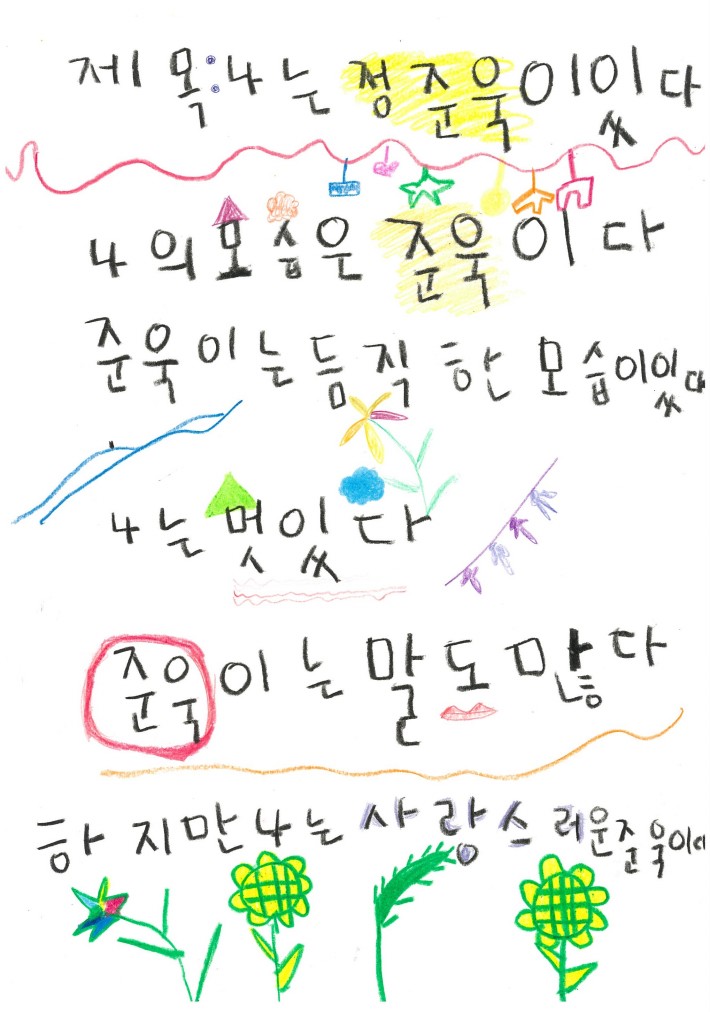 제목:나는 정준욱이있다
나의모습은 준욱이다
준욱이는듬직한 모습이있다
나는 멋있다
준욱이는 말도 많다
하지만나는 사랑스러운준욱이다